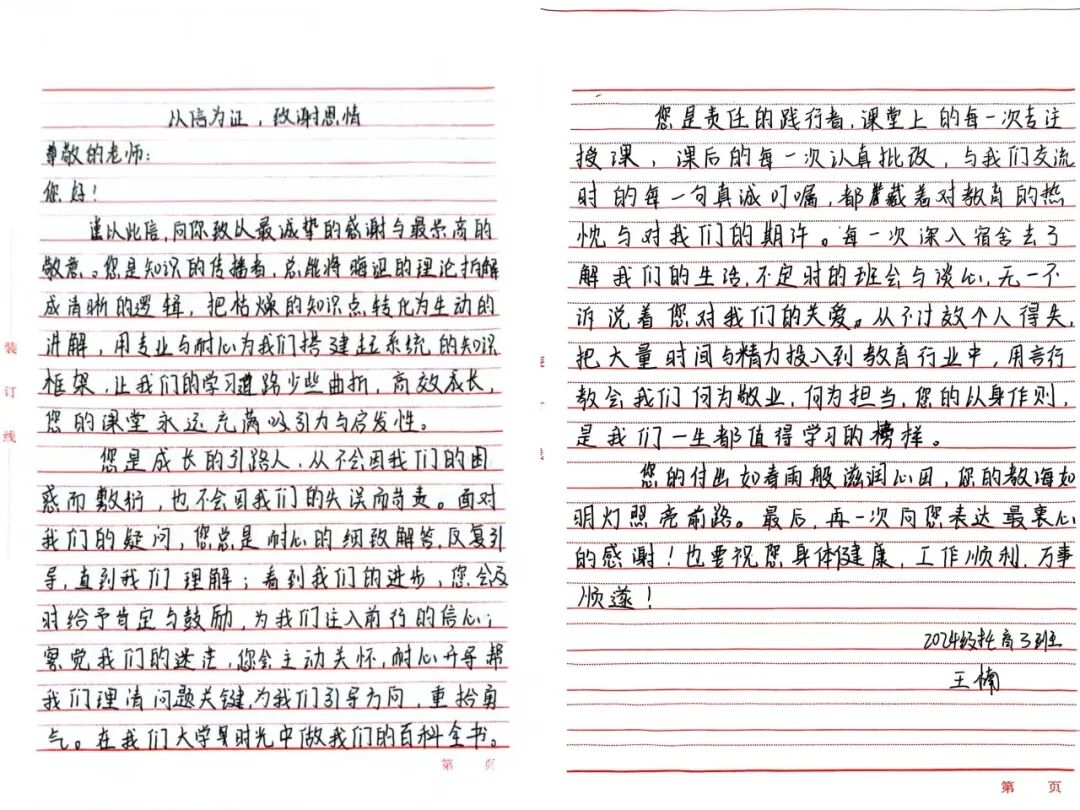 以信为证，致谢恩情
尊敬的老师：
您好！
谨以此信，向你致以最诚挚的感谢与最崇高的
敬意。您是知识的传播者，总能将晦涩的理论拆解
成清晰的逻辑，把枯燥的知识点转化为生动的
讲解，用专业与耐心为我们搭建起系统的知识
框架，让我们的学习道路少些曲折，高效成长，
您的课堂永远充满吸引力与启发性。
您是成长的引路人，从不会因我们的困
惑而敷衍，也不会因我们的失误而苛责。面对
我们的疑问，您总是耐心的细致解答，反复引
导，直到我们理解；看到我们的进步，您会及
时给予肯定与鼓励，为我们注入前行的信心；
察觉我们的迷茫，您会主动关怀，耐心开导帮
我们理清问题关键，为我们引导方向，重拾勇
气。在我们大学时光中做我们的百科全书。
装订线
第 页
您是责任的践行者，课堂上的每一次专注
授课，课后的每一次认真批改，与我们交流
时的每一句真诚叮嘱，都藏着对教育的热
忱与对我们的期许。每一次深入宿舍去了
解我们的生活，不定时的班会与谈心，无一不
诉说着您对我们的关爱。从不计效个人得失，
把大量时间与精力投入到教育行业中，用言行
教会我们何为敬业，何为担当，您的以身作则，
是我们一生都值得学习的榜样。
您的付出如春雨般滋润心田，您的教海如
明灯照亮前路。最后，再一次向您表达最衷心
的感谢！也要祝您身体健康，工作顺利，万事
顺遂！
2024级托育3班
王楠
第 页